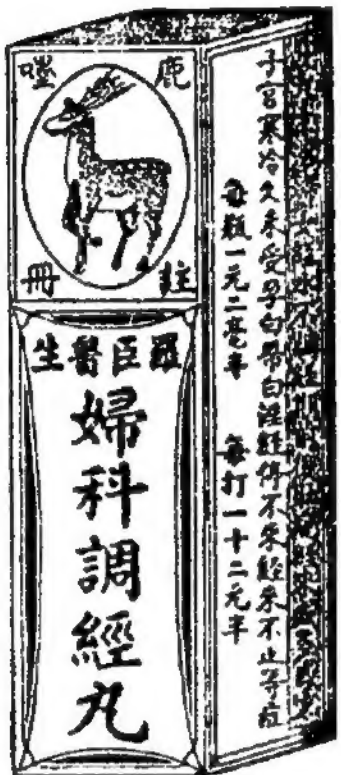 鹿嘜
註冊
羅臣醫生
婦科調經丸
水不調經期
子宮寒冷久未受孕白帶白淫經停不來經來不止等症
每瓶一元二毫半 每打一十二元半